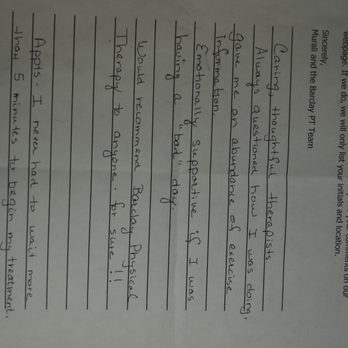 webpage. If we do, we will only list your initials and location.
Sincerely,
Murali and the Barclay PT Team
Caring thoughtful therapists
Always questioned how I was doing.
gave me an abundance of exercise
information
Emotionally supportive if I was
having a "bad" day.
Would recommend Barclay Physical
Therapy to anyone - for sure!!
Appts - I never had to wait more
than 5 minutes to begin my treatment.